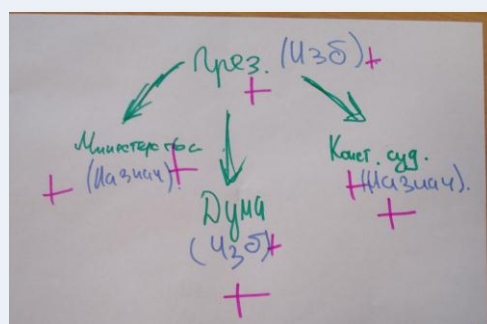 През. (Изб)
Министерство
(Назнач)
Конст. суд.
(Назнач).
Дума
(Изб)